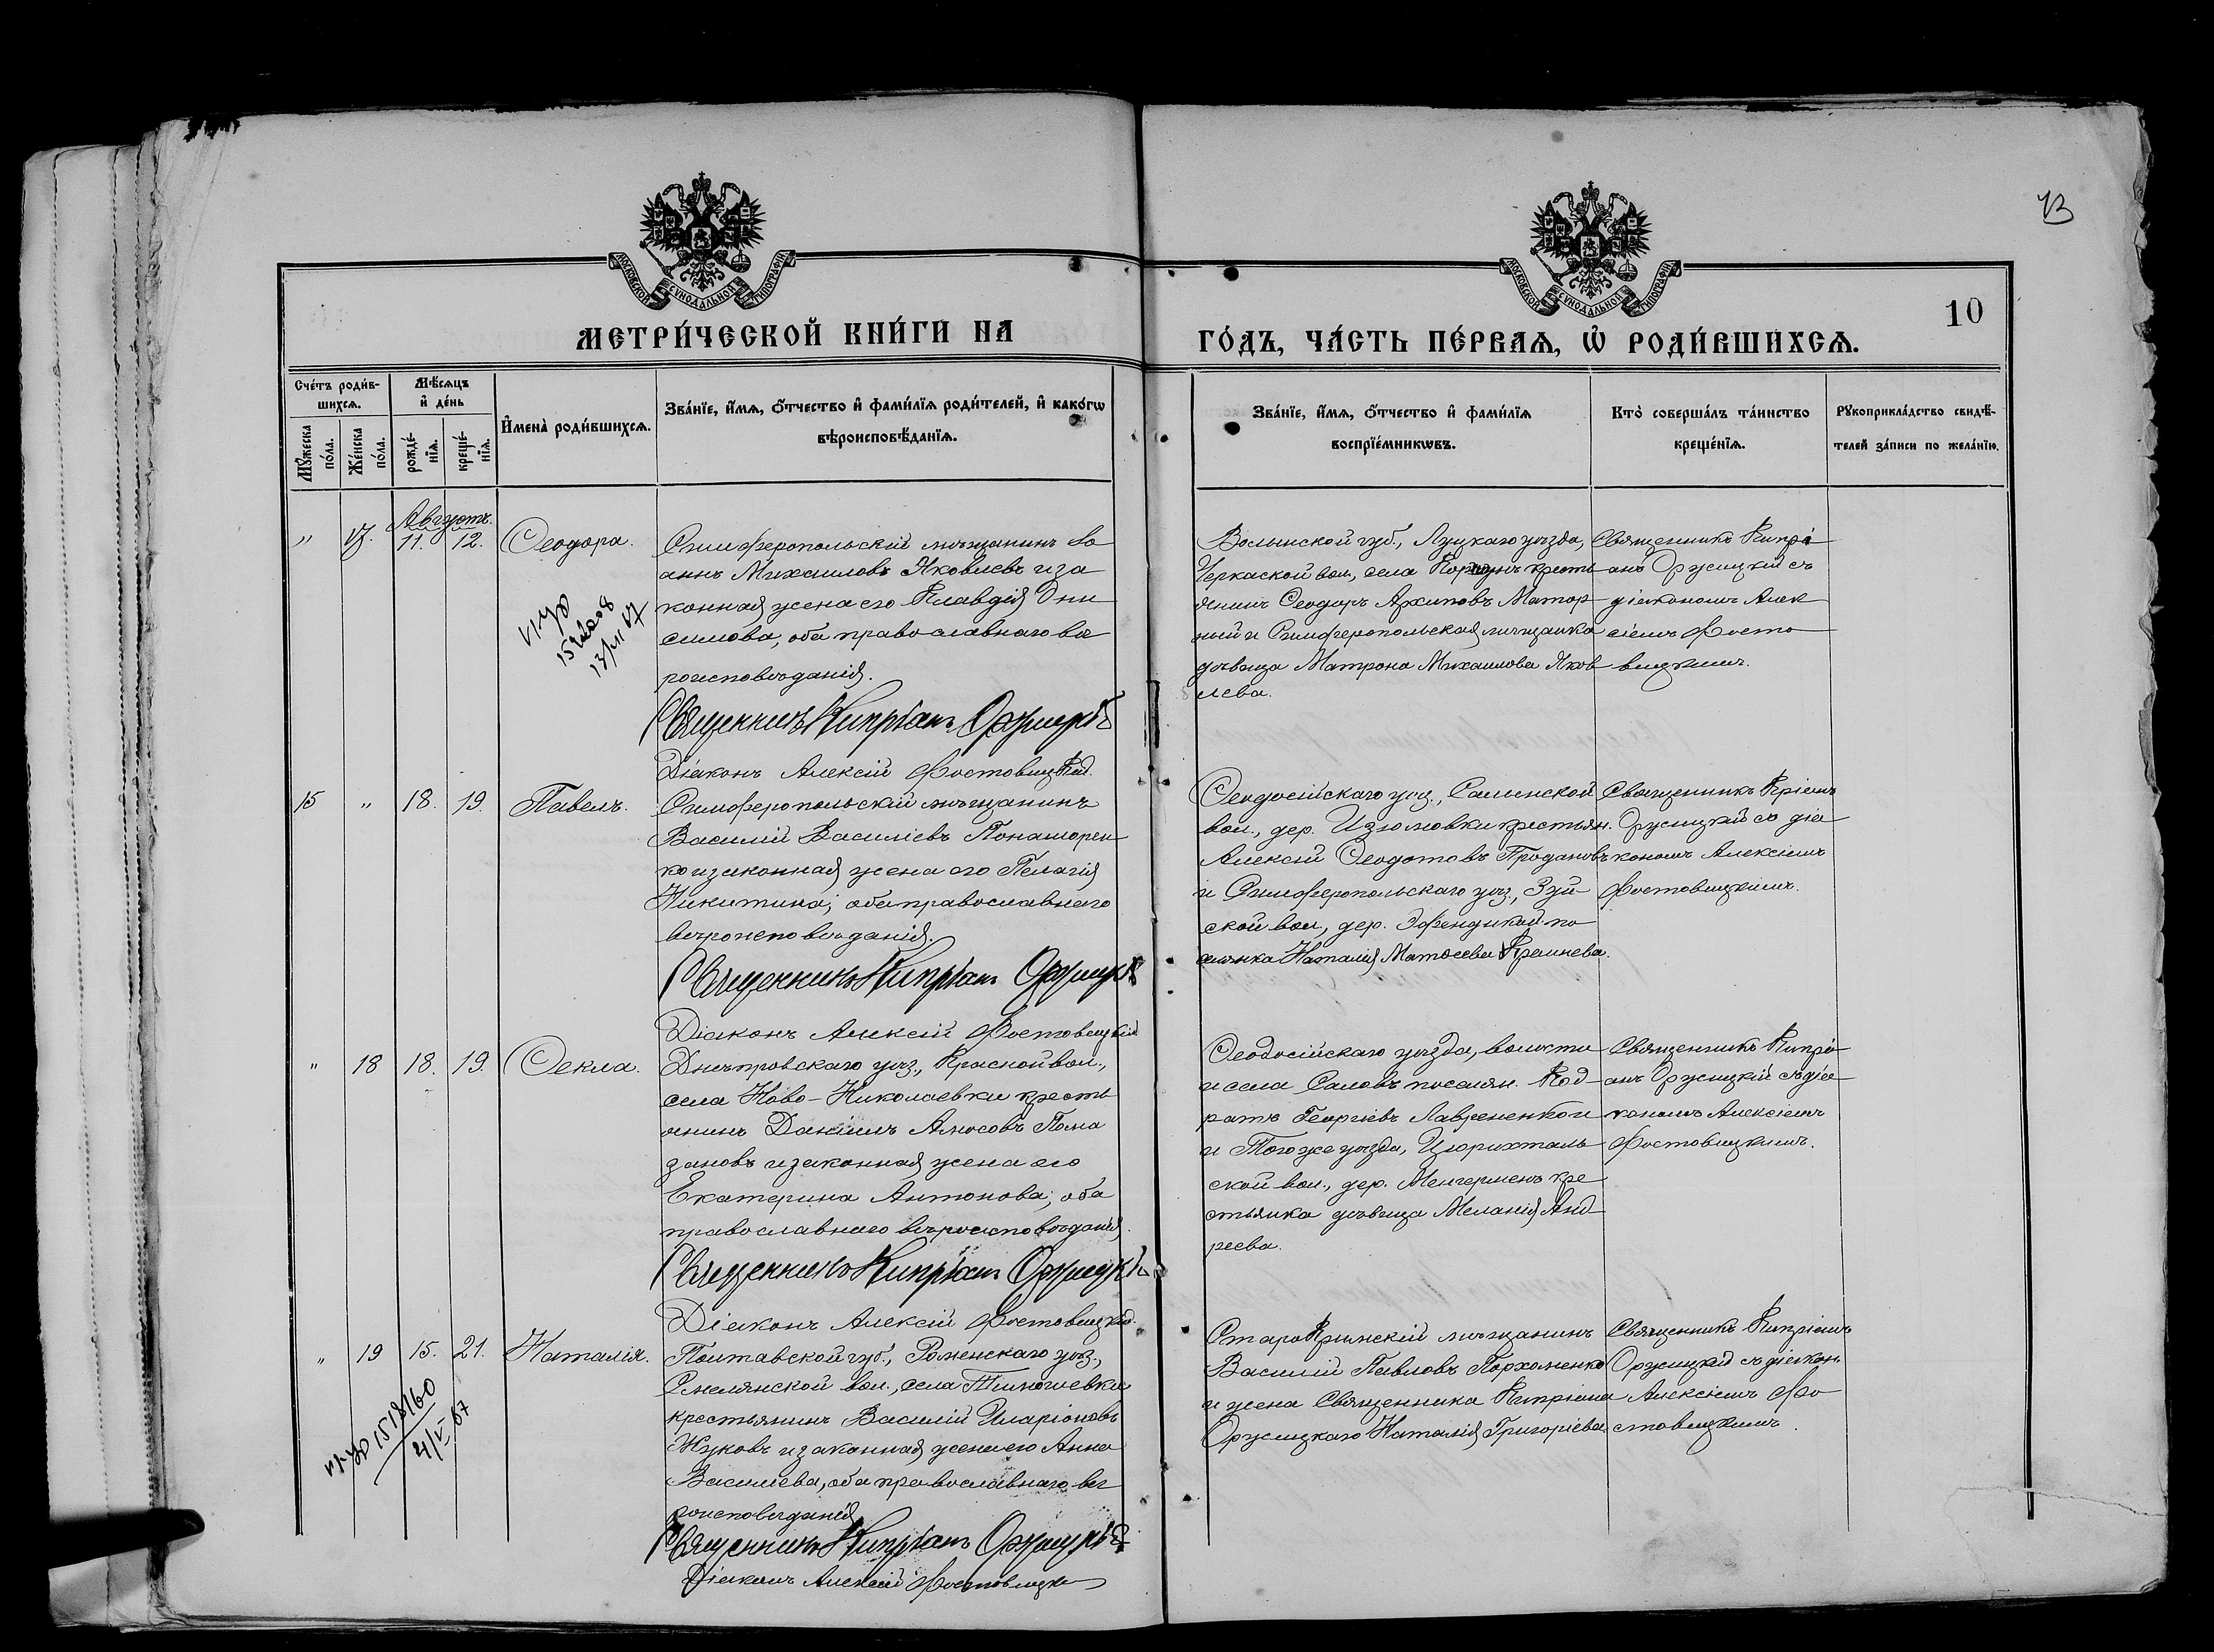 МОСКОВСКОЙ СѴНОДАЛЬНОЙ ТИПОГРАФІИ
МОСКОВСКОЙ СѴНОДАЛЬНОЙ ТИПОГРАФІИ
10
МЕТРИ́ЧЕСКОЙ КНИ́ГИ НА
ГО́ДЪ, ЧА́СТЬ ПЕ́РВАѦ, Ѡ҆ РОДИ́ВШИХСѦ.
Сче́тъ роди́в-
шихсѧ.
Мꙋ́жеска по́ла.
Же́нска по́ла.
Мѣ́сѧцъ
и҆ де́нь
рожде́-
нїѧ.
креще́-
нїѧ.
И҆мена̀ роди́вшихсѧ.
Зва́нїе, и҆́мѧ, ѻ҆́тчество и҆ фами́лїѧ роди́телей, и҆ како́гѡ
вѣроисповѣ́данїѧ.
Зва́нїе, и҆́мѧ, ѻ҆́тчество и҆ фами́лїѧ
воспрїе́мникѡвъ.
Кто̀ соверша́лъ та́инство
креще́нїѧ.
Рꙋкоприкла́дство свидѣ́-
телей за́писи по жела́нїю.
Августъ.
" 17. 11. 12. Ѳеодора.
Симферопольскій мѣщанинъ Іо
аннъ Михаиловъ Яковлевъ и за
конная жена его Клавдія Они
симова, оба православнаго вѣ
роисповѣданія.
Священникъ Кипріанъ
Діаконъ Алексій Фостовицкій.
Волынской губ., Луцкаго уѣзда,
Черкаской вол., села кресть
янинъ Ѳеодоръ Архиповъ Матор
ный и Симферопольская мѣщанка
дѣвица Матрона Михаилова Яков
лева.
Священникъ Кипрі
анъ Оржицкій съ
діакономъ Алек
сіемъ Фосто
вицкимъ.
15 " 18. 19. Павелъ.
Симферопольскій мѣщанинъ
Василій Василіевъ Понаморен
ко и законная жена его Пелагія
Никитина, оба православнаго
вѣроисповѣданія.
Священникъ Кипріанъ
Діаконъ Алексій Фостовицкій
Ѳеодосійскаго уѣз., Салынской
вол., дер. Изюмовки крестьян.
Алексій Ѳеодотовъ Продановъ
и Симферопольскаго уѣз., Зуй-
ской вол., дер. Эфендикой по
селянка Наталія Матѳеева
Священникъ
Оржицкій съ діа
кономъ Алексіемъ
Фостовицкимъ.
" 18 18. 19. Ѳекла.
Днѣпровскаго уѣз., Красной вол.,
села Ново-Николаевки кресть
янинъ Даніилъ Амосовъ Пома
зановъ и законная жена его
Екатерина Антонова, оба
православнаго вѣроисповѣданія.
Священникъ Кипріанъ
Діаконъ Алексій Фостовицкій.
Ѳеодосійскаго уѣзда, волости
и села Саловъ поселян. Код-
ратъ Георгіевъ Лаврененко и
и Тогоже уѣзда, Цюрихталь
ской вол., дер. кре
стьянка дѣвица Меланія Анд
реева.
Священникъ Кипрі
анъ Оржицкій съ діа
кономъ Алексіемъ
Фостовицкимъ.
" 19 15. 21. Наталія.
Полтавской губ., Роменскаго уѣз.,
Смелянской вол., села Тимошевки
крестьянинъ Василій Иларіоновъ
Жуковъ и законная жена его Анна
Василіева, оба православнаго вѣ
роисповѣданія
Священникъ Кипріанъ
Діаконъ Алексій Фостовицкій
Старокрымскій мѣщанинъ
Василій Павловъ Пархоменко
и жена Священника Кипріана
Оржицкаго Наталія Григоріева.
Священникъ Кипріанъ
Оржицкій съ діакон.
Алексіемъ Фо
стовицкимъ.